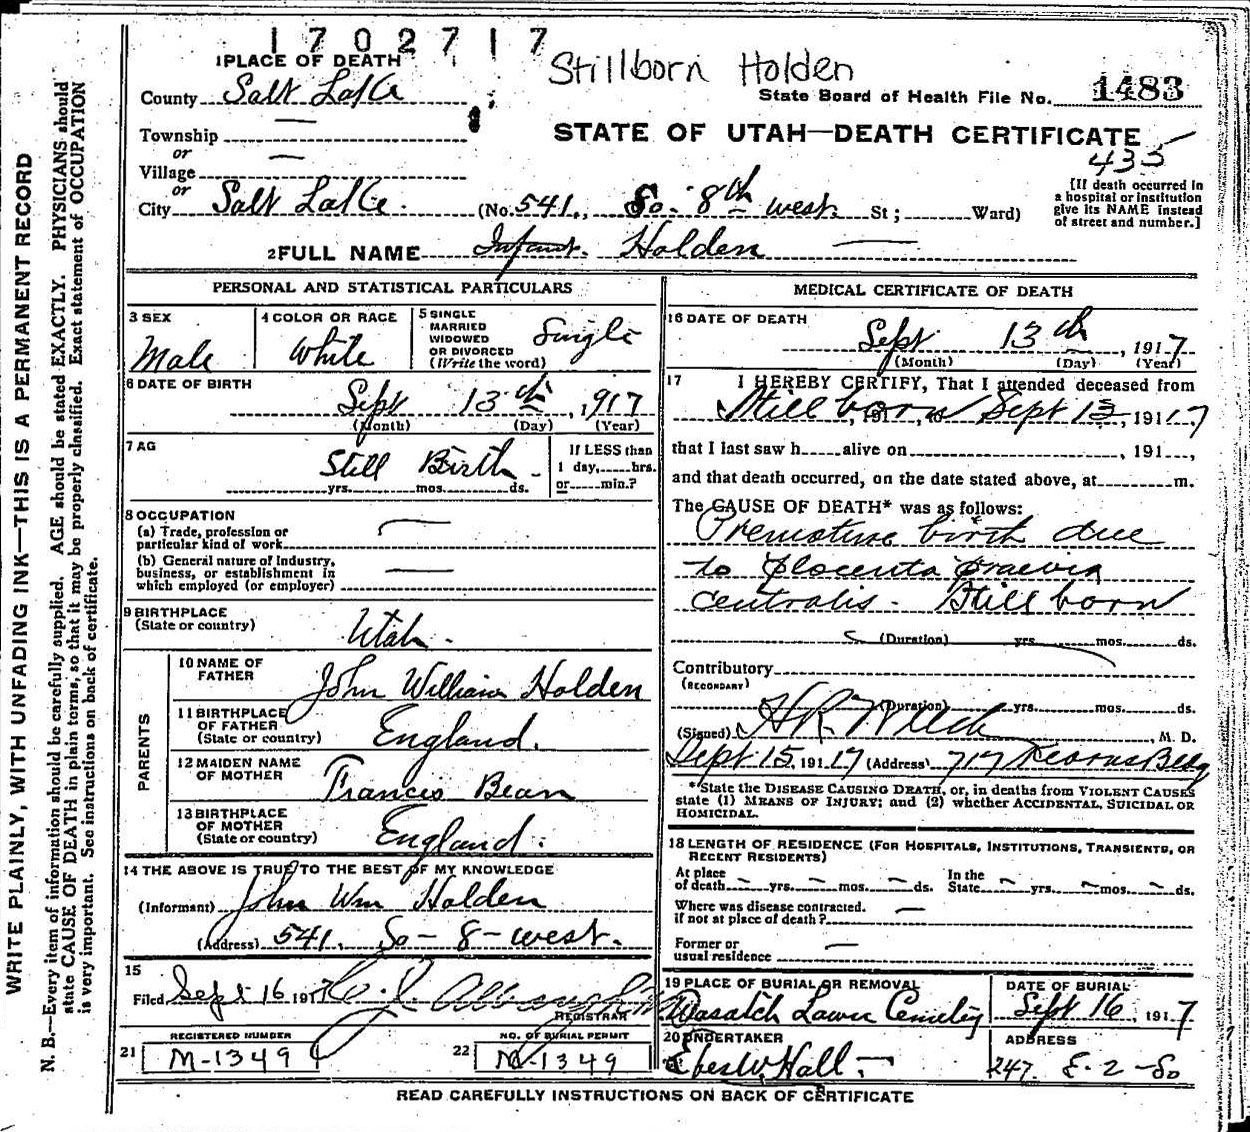 1702717
Stillborn Holden
1 PLACE OF DEATH
County Salt Lake
State Board of Health File No. 1483
Township
STATE OF UTAH—DEATH CERTIFICATE
or
435
Village
or
City Salt Lake. (No. 541, So. 8th west. St; Ward)
[If death occurred in a hospital or institution give its NAME instead of street and number.]
2 FULL NAME Infant. Holden
PERSONAL AND STATISTICAL PARTICULARS
3 SEX
Male
4 COLOR OR RACE
White
5 SINGLE MARRIED WIDOWED OR DIVORCED (Write the word)
Single
6 DATE OF BIRTH
Sept 13th, 1917
(Month) (Day) (Year)
7 AG
Still Birth
yrs. mos. ds.
If LESS than 1 day, hrs. or min.?
8 OCCUPATION
(a) Trade, profession or particular kind of work
(b) General nature of Industry, business, or establishment in which employed (or employer)
9 BIRTHPLACE
(State or country)
Utah.
PARENTS
10 NAME OF FATHER
John William Holden
11 BIRTHPLACE OF FATHER (State or country)
England.
12 MAIDEN NAME OF MOTHER
Frances Bean
13 BIRTHPLACE OF MOTHER (State or country)
England.
14 THE ABOVE IS TRUE TO THE BEST OF MY KNOWLEDGE
(Informant) John Wm Holden
(Address) 541. So - 8 - west.
15
Filed Sept 16 1917
REGISTRAR
REGISTERED NUMBER
21 M-1349
NO. OF BURIAL PERMIT
22 M-1349
MEDICAL CERTIFICATE OF DEATH
16 DATE OF DEATH
Sept 13th, 1917
(Month) (Day) (Year)
17 I HEREBY CERTIFY, That I attended deceased from
Still born, 191, to Sept 13, 191 17
that I last saw h alive on , 191 ,
and that death occurred, on the date stated above, at m.
The CAUSE OF DEATH* was as follows:
Premature birth due
to Placenta Praevia
centralis. Still born
(Duration) yrs. mos. ds.
Contributory
(SECONDARY)
(Duration) yrs. mos. ds.
(Signed) M. D.
Sept 15, 191 17 (Address) 717 Kearns Bldg
*State the DISEASE CAUSING DEATH, or, in deaths from VIOLENT CAUSES state (1) MEANS OF INJURY; and (2) whether ACCIDENTAL, SUICIDAL OR HOMICIDAL.
18 LENGTH OF RESIDENCE (FOR HOSPITALS, INSTITUTIONS, TRANSIENTS, OR RECENT RESIDENTS)
At place of death yrs. mos. ds. In the State yrs. mos. ds.
Where was disease contracted. if not at place of death?
Former or usual residence
19 PLACE OF BURIAL OR REMOVAL
Wasatch Lawn Cemetery
DATE OF BURIAL
Sept 16, 1917
20 UNDERTAKER
Eber W. Hall.
ADDRESS
247. E - 2 - So
READ CAREFULLY INSTRUCTIONS ON BACK OF CERTIFICATE
WRITE PLAINLY, WITH UNFADING INK—THIS IS A PERMANENT RECORD
N. B.—Every item of information should be carefully supplied. AGE should be stated EXACTLY. PHYSICIANS should
state CAUSE OF DEATH in plain terms, so that it may be properly classified. Exact statement of OCCUPATION
is very important. See instructions on back of certificate.